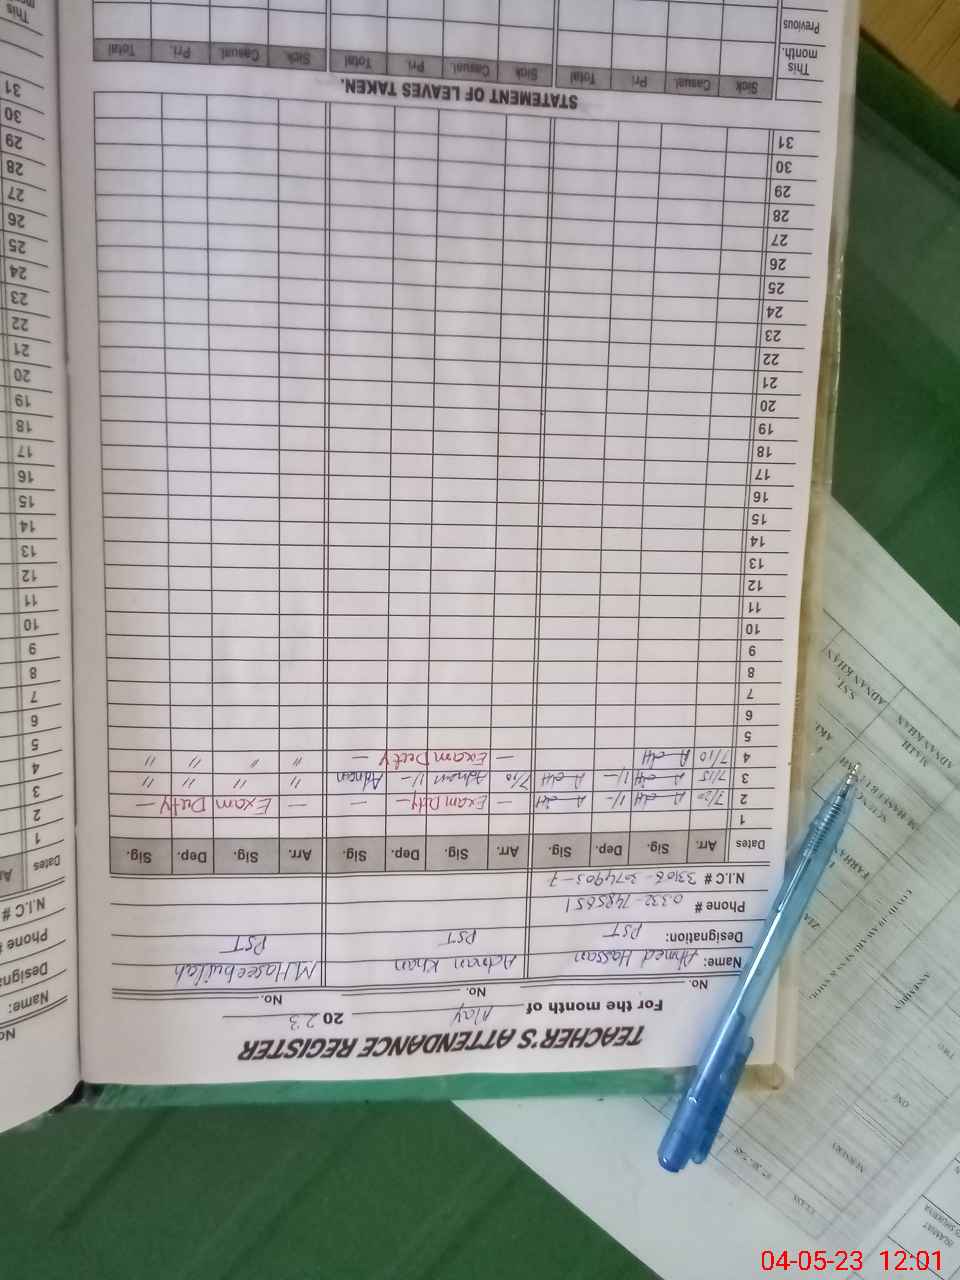 TEACHER'S ATTENDANCE REGISTER
For the month of May 2023
No. No. No.
Name: Ahmed Hassan Adnan Khan M.Haseebullah
Designation: PST PST PST
Phone # 0332-7485851
N.I.C # 33106-3074905-7
Dates Arr. Sig. Dep. Sig. Arr. Sig. Dep. Sig. Arr. Sig. Dep. Sig.
1
2 7/20 — Exam Duty — — — Exam Duty —
3 7/15 7/20 Adnan Adnan " " " "
4 7/10 — Exam Duty — " " " "
5
6
7
8
9
10
11
12
13
14
15
16
17
18
19
20
21
22
23
24
25
26
27
28
29
30
31
STATEMENT OF LEAVES TAKEN.
Sick Casual. Pri. Total Sick Casual. Pri. Total Sick Casual. Pri. Total
This month.
Previous
No
Name:
Phone #
N.I.C #
Dates
1
2
3
4
5
6
7
8
9
10
11
12
13
14
15
16
17
18
19
20
21
22
23
24
25
26
27
28
29
30
31
This
CLASS
NURSERY
ONE
TWO
ADNAN KHAN
ADNAN KHAN
SST.
ISLAMIAT
04-05-23 12:01